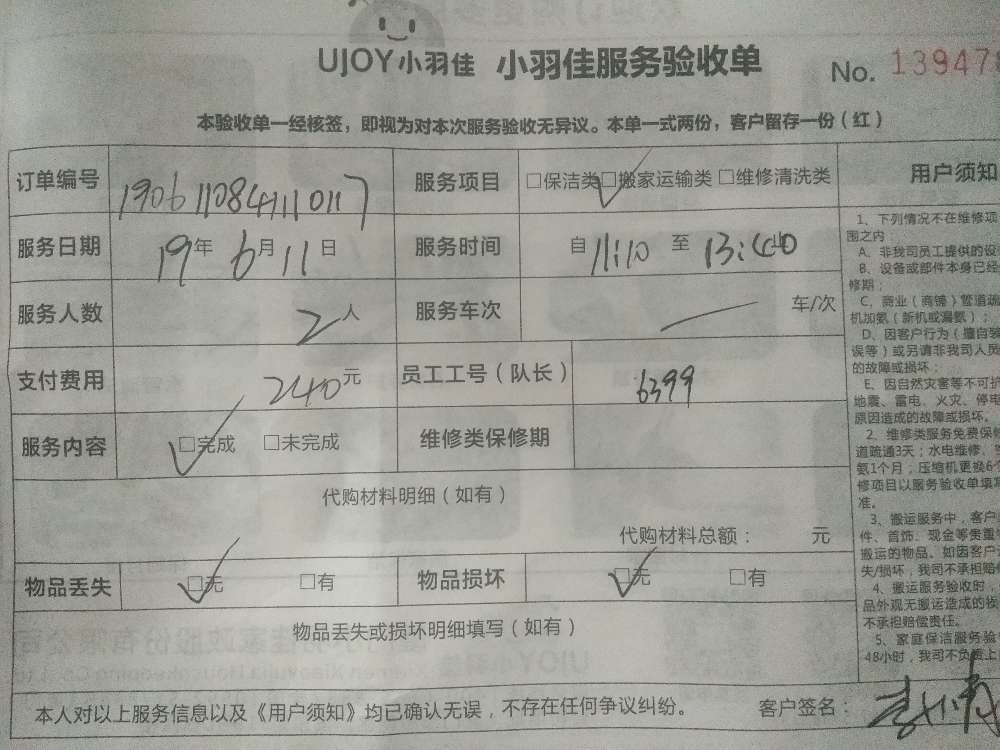 UJOY小羽佳 小羽佳服务验收单 No. 139478
本验收单一经核签，即视为对本次服务验收无异议。本单一式两份，客户留存一份（红）
订单编号 1906110841110117 服务项目 □保洁类 □搬家运输类 □维修清洗类 用户须知
服务日期 19年6月11日 服务时间 自11:10至13:40
服务人数 2人 服务车次 车/次
支付费用 240元 员工工号（队长） 6399
服务内容 □完成 □未完成 维修类保修期
代购材料明细（如有）
代购材料总额： 元
物品丢失 □无 □有 物品损坏 □无 □有
物品丢失或损坏明细填写（如有）
本人对以上服务信息以及《用户须知》均已确认无误，不存在任何争议纠纷。 客户签名：
1、下列情况不在维修项
围之内：
A、非我司员工提供的设
B、设备或部件本身已经
修期；
C、商业（商铺）管道疏
机加氨（新机或漏氨）；
D、因客户行为（擅自装
误等）或另请非我司人员
的故障或损坏；
E、因自然灾害等不可抗
地震、雷电、火灾、停电
原因造成的故障或损坏。
2、维修类服务免费保修
道疏通3天；水电维修、
氨1个月，压缩机更换6
修项目以服务验收单填写
准。
3、搬运服务中，客户
件、首饰、现金等贵重
搬运的物品。如因客户
失/损坏，我司不承担赔
4、搬运服务验收时，
品外观无搬运造成的损
不承担赔偿责任。
5、家庭保洁服务验
48小时，我司不负责上